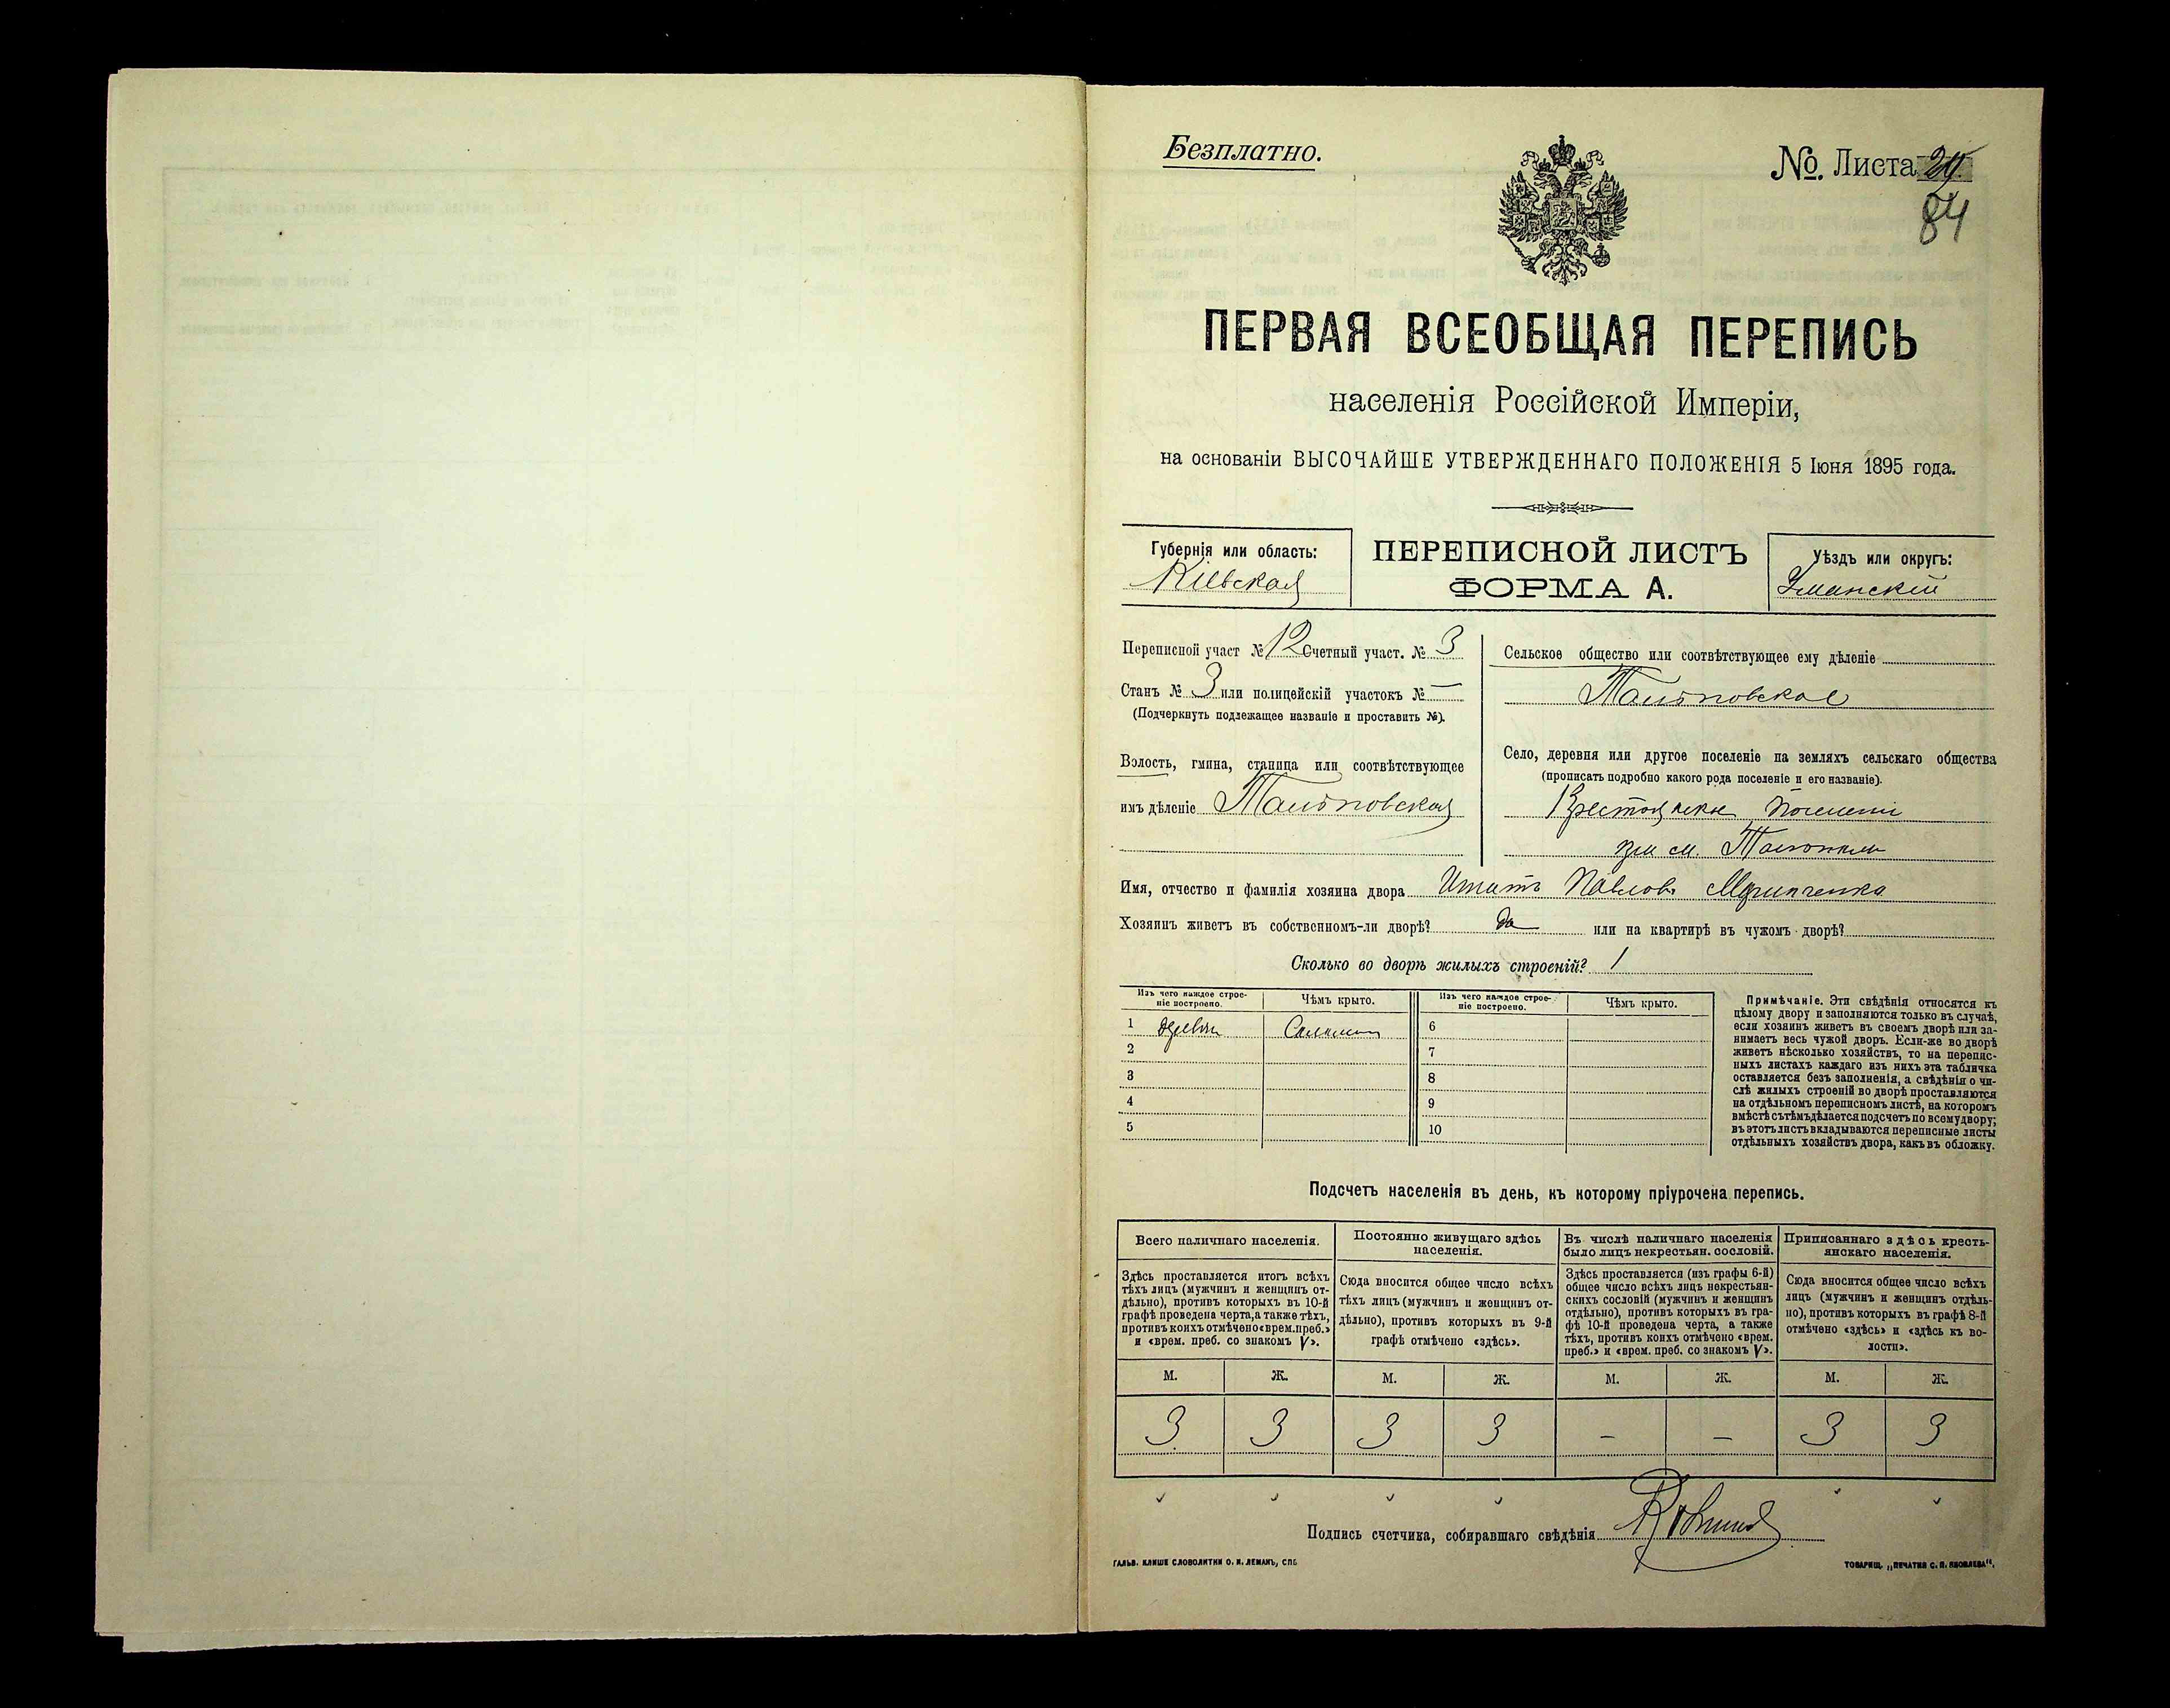 Безплатно.
№. Листа 29
84
ПЕРВАЯ ВСЕОБЩАЯ ПЕРЕПИСЬ
населенія Россійской Имперіи,
на основаніи ВЫСОЧАЙШЕ УТВЕРЖДЕННАГО ПОЛОЖЕНІЯ 5 Іюня 1895 года.
Губернія или область:
Кіевская
ПЕРЕПИСНОЙ ЛИСТЪ
ФОРМА А.
Уѣздъ или округъ:
Уманскій
Переписной участ № 12 Счетный участ. № 3
Станъ № 3 или полицейскій участокъ № —
(Подчеркнуть подлежащее названіе и проставить №).
Волость, гмина, станица или соотвѣтствующее
имъ дѣленіе Тальновская
Сельское общество или соотвѣтствующее ему дѣленіе
Тальновское
Село, деревня или другое поселеніе на земляхъ сельскаго общества
(прописать подробно какого рода поселеніе и его названіе).
при м.
Имя, отчество и фамилія хозяина двора Павловъ
Хозяинъ живетъ въ собственномъ-ли дворѣ? да или на квартирѣ въ чужомъ дворѣ?
Сколько во дворѣ жилыхъ строеній? 1
Изъ чего каждое строе-
ніе построено.
Чѣмъ крыто.
Изъ чего каждое строе-
ніе построено.
Чѣмъ крыто.
1 6
2 7
3 8
4 9
5 10
Примѣчаніе. Эти свѣдѣнія относятся къ
цѣлому двору и заполняются только въ случаѣ,
если хозяинъ живетъ въ своемъ дворѣ или за-
нимаетъ весь чужой дворъ. Если-же во дворѣ
живетъ нѣсколько хозяйствъ, то на перепис-
ныхъ листахъ каждаго изъ нихъ эта табличка
оставляется безъ заполненія, а свѣдѣнія о чи-
слѣ жилыхъ строеній во дворѣ проставляются
на отдѣльномъ переписномъ листѣ, на которомъ
вмѣстѣ съ тѣмъ дѣлается подсчетъ по всему двору;
въ этотъ листъ вкладываются переписные листы
отдѣльныхъ хозяйствъ двора, какъ въ обложку.
Подсчетъ населенія въ день, къ которому пріурочена перепись.
Всего наличнаго населенія.
Здѣсь проставляется итогъ всѣхъ
тѣхъ лицъ (мужчинъ и женщинъ от-
дѣльно), противъ которыхъ въ 10-й
графѣ проведена черта, а также тѣхъ,
противъ коихъ отмѣчено «врем. преб.»
и «врем. преб. со знакомъ V».
Постоянно живущаго здѣсь
населенія.
Сюда вносится общее число всѣхъ
тѣхъ лицъ (мужчинъ и женщинъ от-
дѣльно), противъ которыхъ въ 9-й
графѣ отмѣчено «здѣсь».
Въ числѣ наличнаго населенія
было лицъ некрестьян. сословій.
Здѣсь проставляется (изъ графы 6-й)
общее число всѣхъ лицъ некрестьян-
скихъ сословій (мужчинъ и женщинъ
отдѣльно), противъ которыхъ въ гра-
фѣ 10-й проведена черта, а также
тѣхъ, противъ коихъ отмѣчено «врем.
преб.» и «врем. преб. со знакомъ V».
Приписаннаго здѣсь кресть-
янскаго населенія.
Сюда вносится общее число всѣхъ
лицъ (мужчинъ и женщинъ отдѣль-
но), противъ которыхъ въ графѣ 8-й
отмѣчено «здѣсь» и «здѣсь къ во-
лости».
М. Ж. М. Ж. М. Ж. М. Ж.
3 3 3 3 — — 3 3
Подпись счетчика, собиравшаго свѣдѣнія
ГАЛЬВ. КЛИШЕ СЛОВОЛИТНИ О. И. ЛЕМАНЪ, СПБ
ТОВАРИЩ. „ПЕЧАТНЯ С. П. ЯКОВЛЕВА".